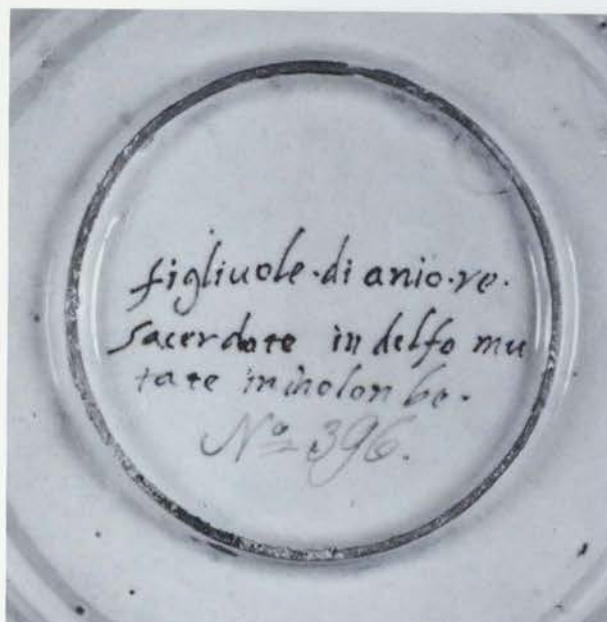 figliuole·di anio·re·
sacerdote in delfo mu
tate in icolon be·
Nº 396.